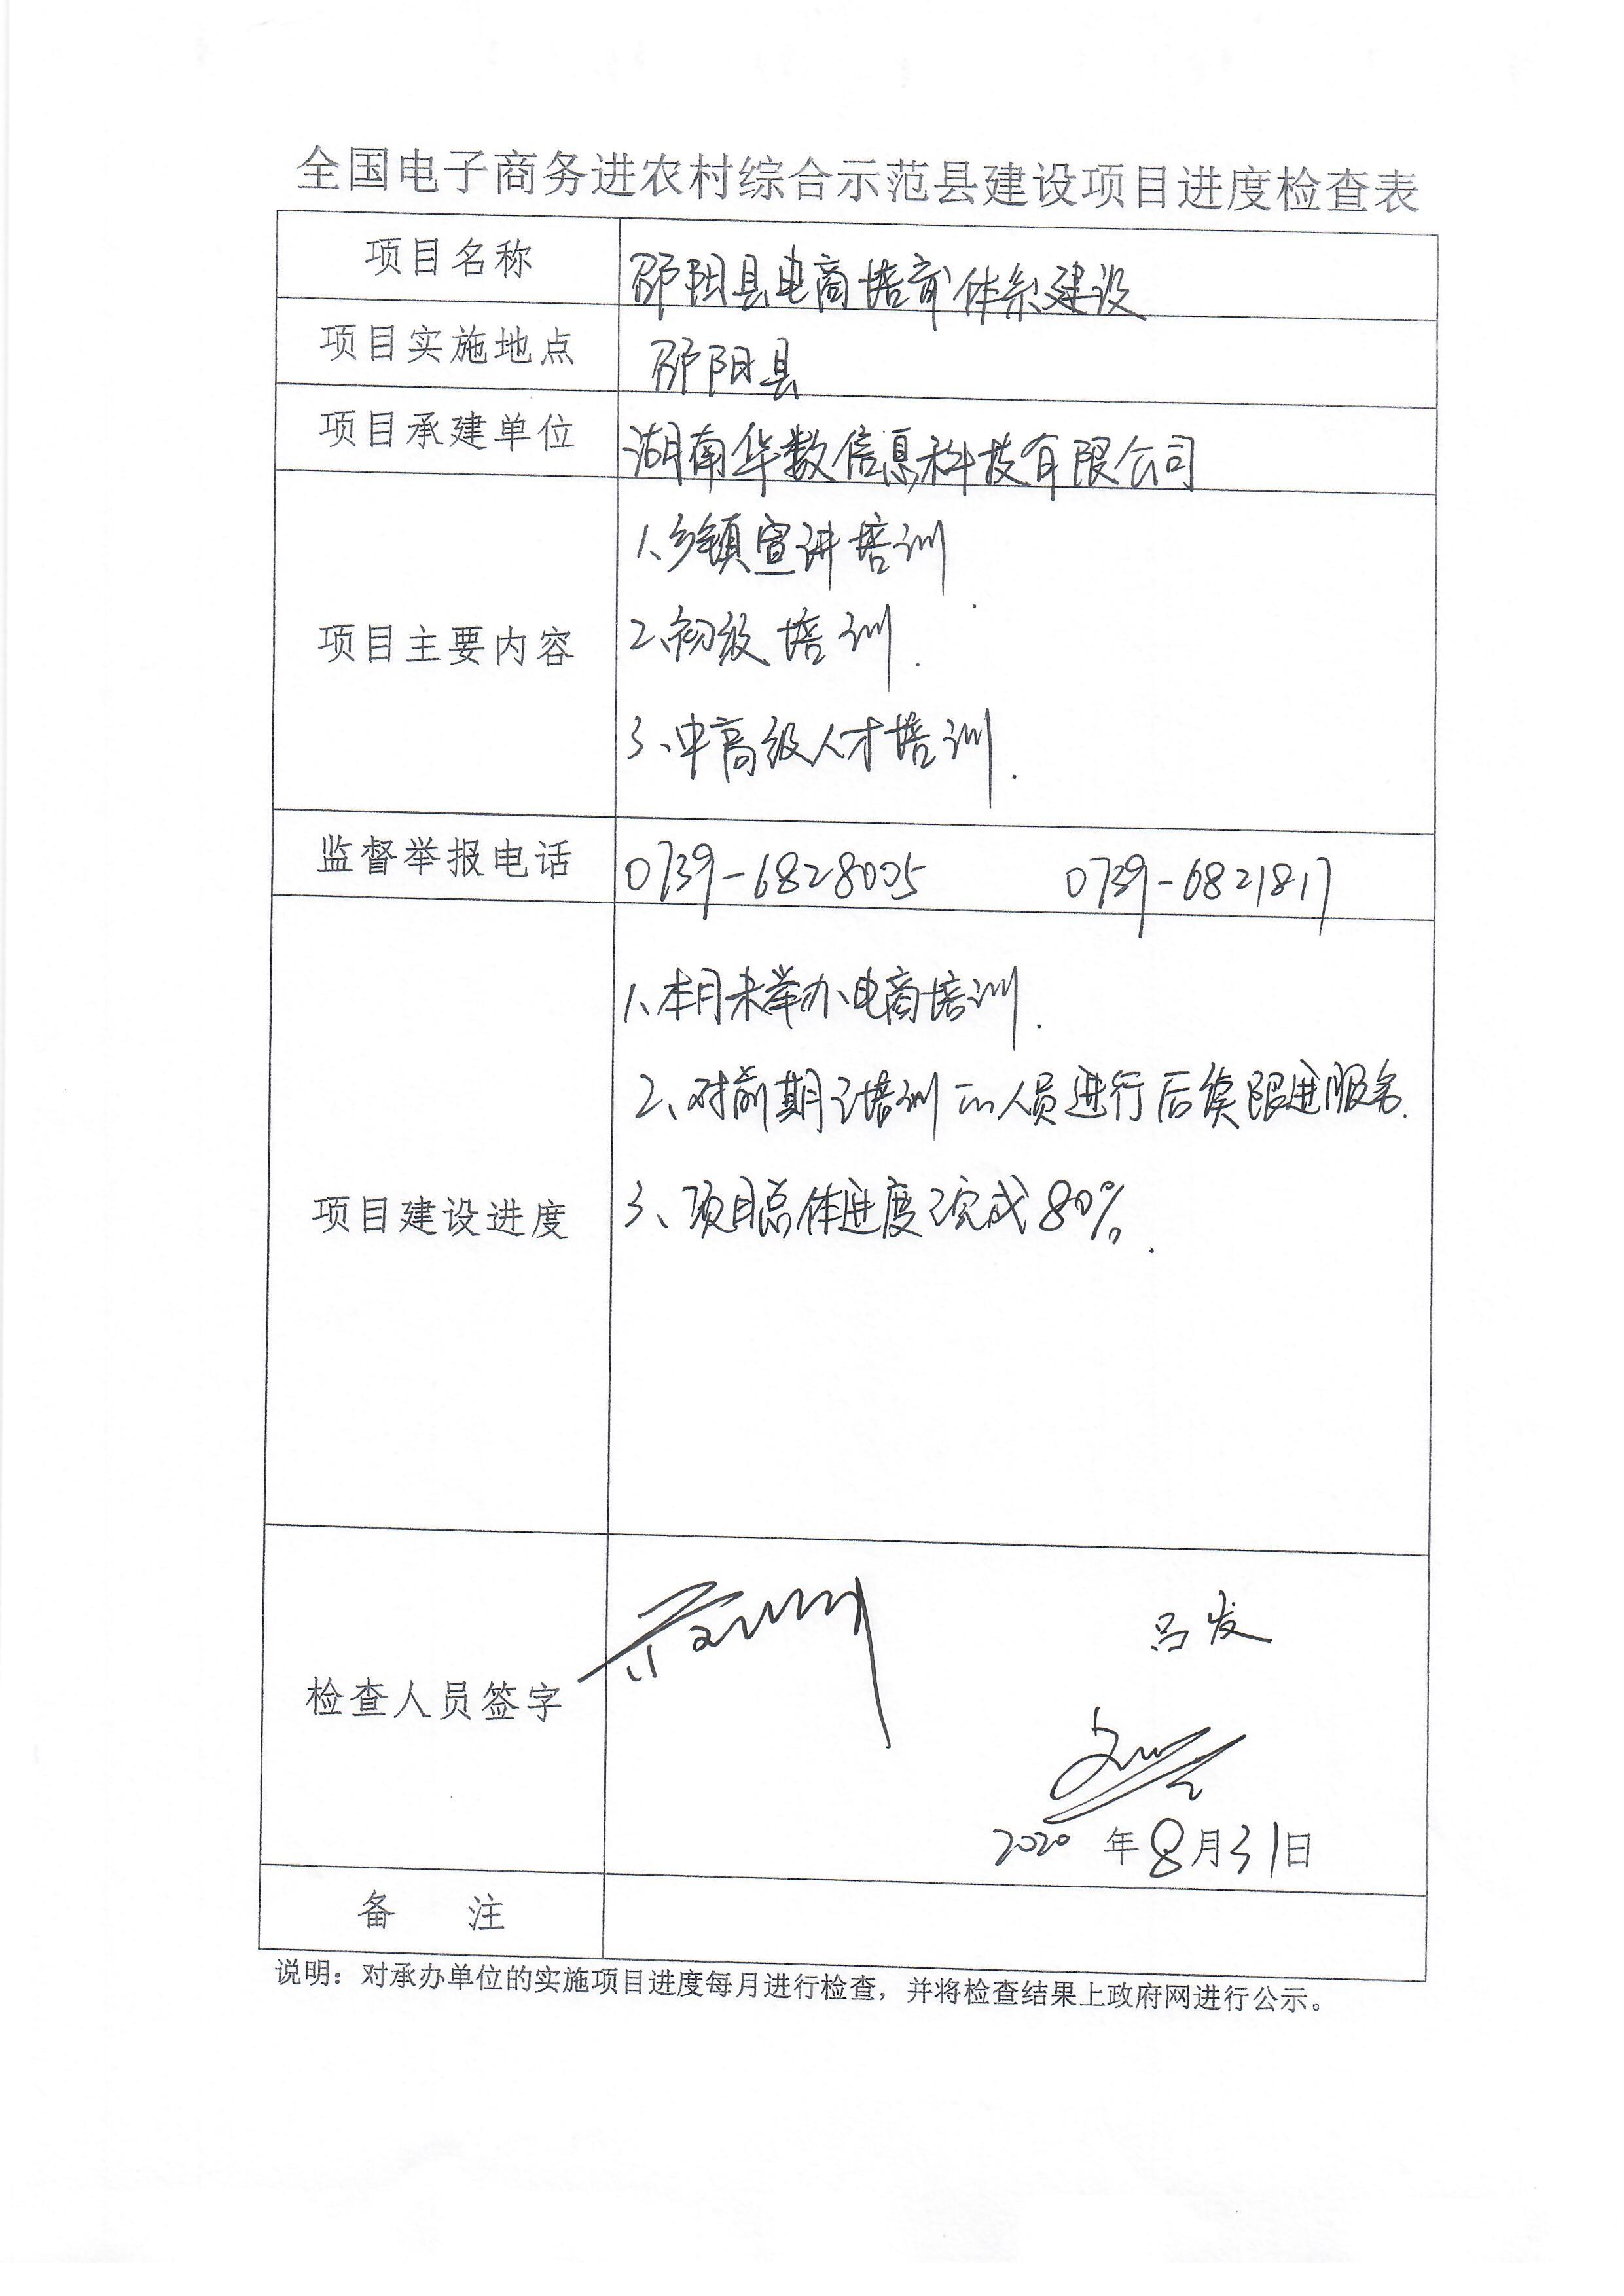 全国电子商务进农村综合示范县建设项目进度检查表
项目名称 邵阳县电商培育体系建设
项目实施地点 邵阳县
项目承建单位 湖南华数信息科技有限公司
项目主要内容
1、乡镇宣讲培训
2、初级培训.
3、中高级人才培训.
监督举报电话 0739-6828005 0739-6821817
项目建设进度
1、本月未举办电商培训.
2、对前期培训的人员进行后续跟进服务.
3、项目总体进度完成80%.
检查人员签字
吕发
2020年8月31日
备 注
说明：对承办单位的实施项目进度每月进行检查，并将检查结果上政府网进行公示。